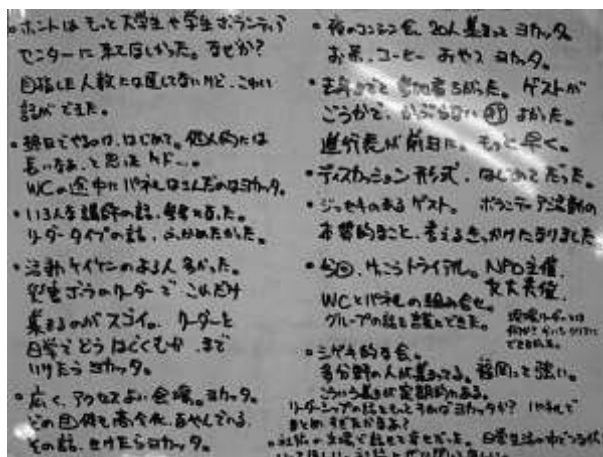 ・ホントはもっと大学生や学生ボランティア
センターに来てほしかった。なぜか?
目指した人数には達してないけど、こわい
話ができた。
・終日でやるのは、はじめて。個人的には
長いなあ、と思ったケド…。
WCの途中にパネルはさんだのはヨカッタ。
・いろんな講師の話、参考になった。
リーダータイプの話、ふかめたかった。
・活動ケイケンのある人多かった。
リーダーで これだけ
集まるのがスゴイ。リーダーと
日常でどうはぐくむか まで
いけたらヨカッタ。
・広く、アクセスよい会場。ヨカッタ。
どの団体も高令化、なやんでいる。
その話、きけたらヨカッタ。
・夜のコンシン会、20人集まって ヨカッタ。
お茶、コーヒー おやつ ヨカッタ。
・参加者 ちがった。ゲストが
ごうかで、かぶらない よかった。
進行表が前日に。もっと早く。
・ディスカッション形式、はじめてだった。
・ジッセキのあるゲスト。 ボランティア活動の
本質的なこと、考えるきっかけになりました
・今回、けっこうトライアル。NPO主催、
WCとパネルの組み合せ。
グループの話も議論できた。
・シゲキ的な会。
多分野の人が集まってる。福岡って強い。
こういう集まりが定期的にある。
リーダーシップの話をもっとすればヨカッタか? パネルで
まとめすぎたかなあ?
の立場で話せて幸せだった。日常生活の中で